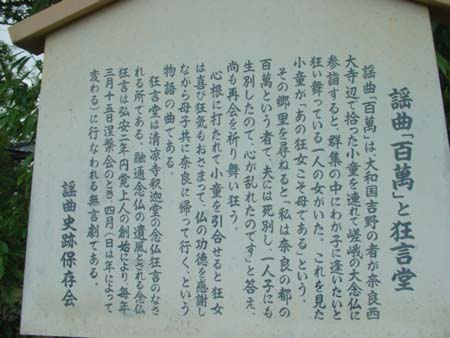 謡曲「百萬」と狂言堂
謡曲「百萬」は、大和国吉野の者が奈良西
大寺辺で拾った小童を連れて嵯峨の大念仏に
参詣すると、群集の中にわが子に逢いたいと
狂い舞っている一人の女がいた。これを見た
小童が「あの狂女こそ母である」という。
その郷里を尋ねると「私は奈良の都の
百萬という者で、夫には死別し、一人子にも
生別したので、心が乱れたのです」と答え、
尚も再会を祈り舞い狂う。
心根に打たれて小童を引合せると狂女
は喜び狂気もおさまって、仏の功徳を感謝し
ながら母子共に奈良に帰って行く、という
物語の曲である。
狂言堂は清凉寺釈迦堂の念仏狂言のなさ
れる所である。融通念仏の遺風とされる念仏
狂言は弘安二年円覚上人の創始により、毎年
三月十五日涅槃会のとき、四月(日は年によって
変わる)に行なわれる無言劇である。
謡曲史跡保存会